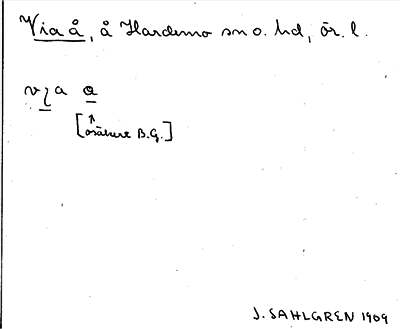 Via å, å Hardemo sn o. hd, ör. l.
vıa a
[osäkert B.G.]
J. SAHLGREN 1909